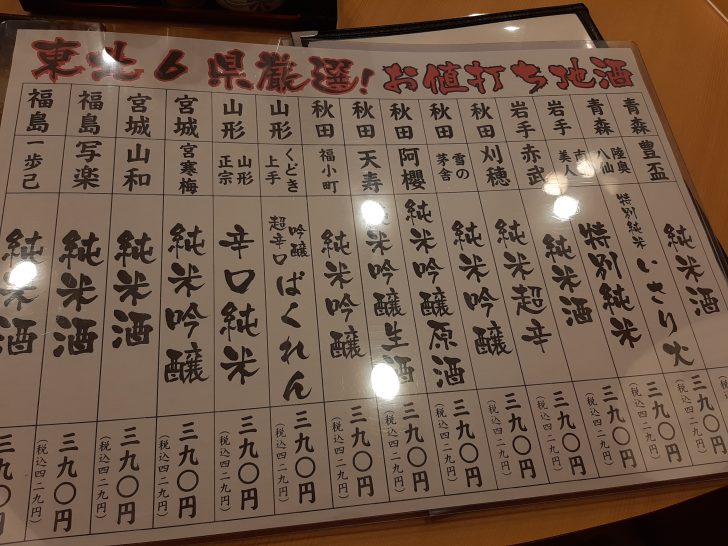 東北6県厳選!お値打ち地酒
青森
豊盃
純米酒
三九〇円
青森
陸奥
八仙
特別純米
いさり火
三九〇円
(税込四二九円)
岩手
南部
美人
特別純米
三九〇円
(税込四二九円)
岩手
赤武
純米酒
三九〇円
(税込四二九円)
秋田
刈穂
純米超辛
三九〇円
(税込四二九円)
秋田
雪の
茅舎
純米吟醸
三九〇円
(税込四二九円)
秋田
阿櫻
純米吟醸原酒
三九〇円
(税込四二九円)
秋田
天寿
純米吟醸生酒
三九〇円
(税込四二九円)
秋田
福小町
純米吟醸
三九〇円
(税込四二九円)
山形
くどき
上手
吟醸
超辛口
ばくれん
三九〇円
(税込四二九円)
山形
山形
正宗
辛口純米
三九〇円
(税込四二九円)
宮城
宮寒梅
純米吟醸
三九〇円
(税込四二九円)
宮城
山和
純米酒
三九〇円
(税込四二九円)
福島
写楽
純米酒
三九〇円
(税込四二九円)
福島
一歩己
純米酒
三九〇円